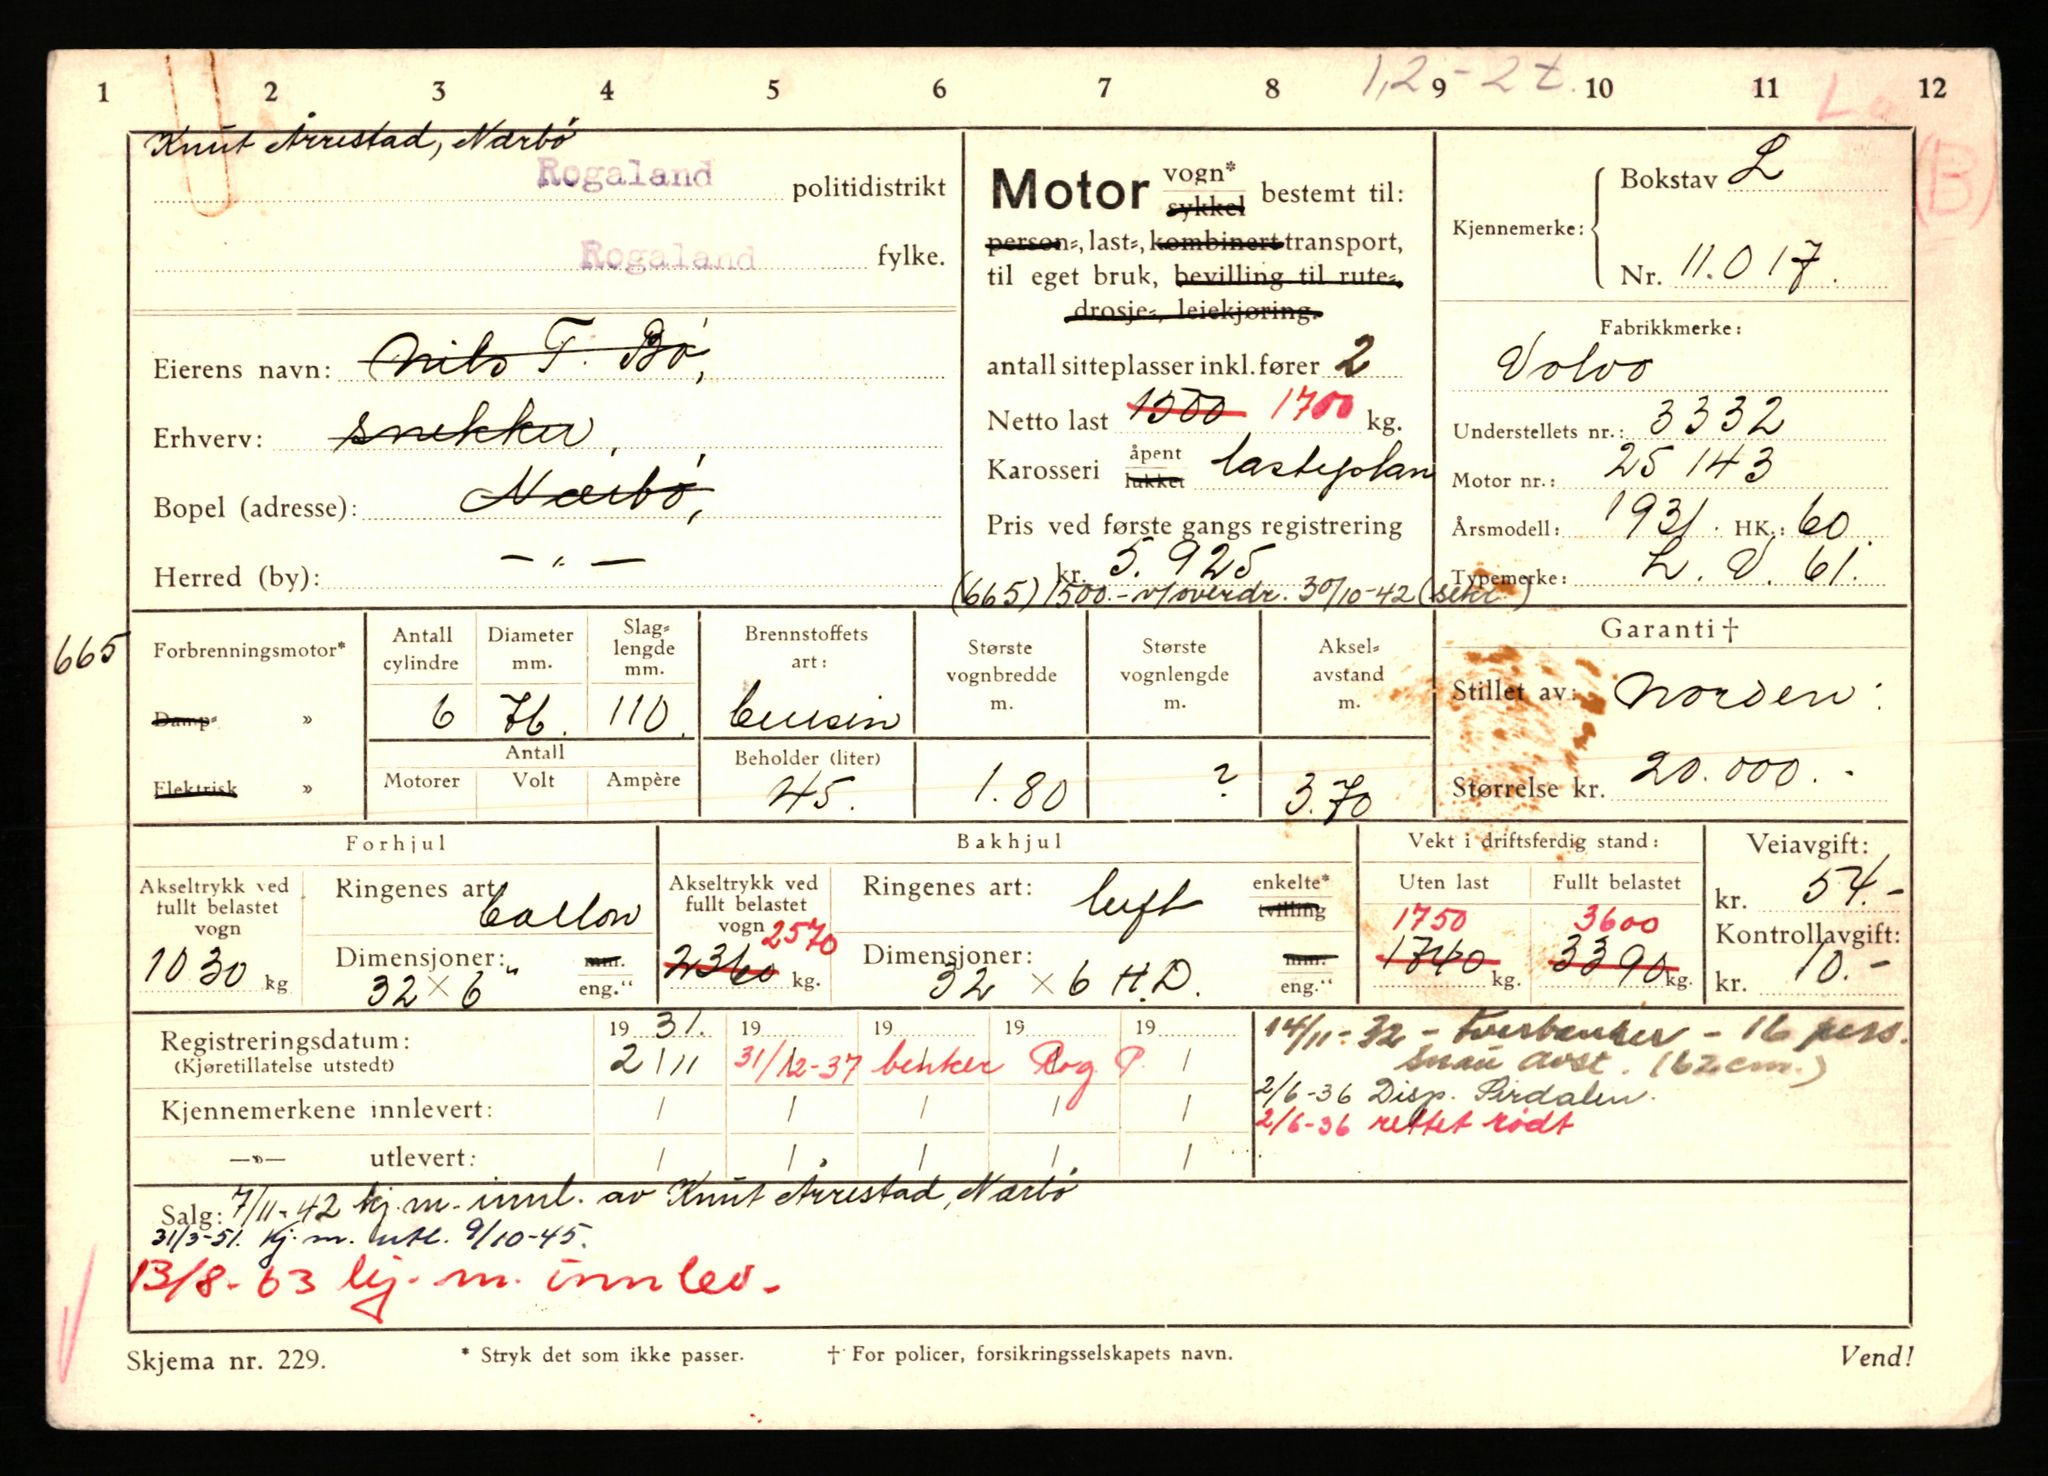 1 2 3 4 5 6 7 8 9 10 11 12
1,2 - 2 t.
(B)
Knut Årrestad, Nærbö
Rogaland politidistrikt
Rogaland fylke.
Eierens navn: Nils T. Bö,
Erhverv: snekker,
Bopel (adresse): Nærbö,
Herred (by): — " —
Motor vogn* sykkel bestemt til:
person-, last-, kombinert transport,
til eget bruk, bevilling til rute-,
drosje-, leiekjøring.
antall sitteplasser inkl. fører 2
Netto last 1500 1700 kg.
Karosseri åpent lukket lasteplan
Pris ved første gangs registrering
kr. 5.925
(665) 1500.- v/overdr. 30/10-42 (sekr.)
Bokstav L
Kjennemerke:
Nr. 11.017.
Fabrikkmerke:
Volvo
Understellets nr.: 3332
Motor nr.: 25143
Årsmodell: 1931. HK.: 60.
Typemerke: L.V. 61.
665
Forbrenningsmotor*
Damp- »
Elektrisk »
Antall cylindre 6
Diameter mm. 76.
Slaglengde mm. 110.
Antall
Motorer Volt Ampère
Brennstoffets art: bensin
Beholder (liter) 45.
Største vognbredde m. 1.80
Største vognlengde m. ?
Akselavstand m. 3.70
Garanti †
Stillet av: Norden:
Størrelse kr. 20.000.-
Forhjul
Akseltrykk ved fullt belastet vogn
1030 kg
Ringenes art: ballon
Dimensjoner: mm.
32 × 6" eng."
Bakhjul
Akseltrykk ved fullt belastet vogn 2570
2360 kg.
Ringenes art: luft enkelte* tvilling
Dimensjoner: mm.
32 × 6 H.D. eng."
Vekt i driftsferdig stand:
Uten last Fullt belastet
1750 3600
1740 kg. 3390 kg.
Veiavgift:
kr. 54.-
Kontrollavgift:
kr. 10.-
Registreringsdatum: 19 31. 19 19 19 19
(Kjøretillatelse utstedt) 2/11 31/12-37 benker Rog. P. /
Kjennemerkene innlevert: / / / / /
—»— utlevert: / / / / /
14/11-32 - Tverbenker - 16 pers.
snau avst. (62 cm.)
2/6-36 Disp. Sirdalen.
2/6-36 rettet rödt
Salg: 7/11-42 kj.m. innl. av Knut Årrestad, Nærbö
31/3-51. Kj.m. utl. 9/10-45.
13/8-63 kj.m. innlev.
Skjema nr. 229.
* Stryk det som ikke passer.
† For policer, forsikringsselskapets navn.
Vend!